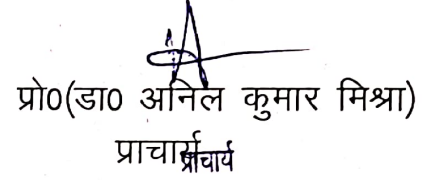 प्रो0(डा0 अनिल कुमार मिश्रा)
प्राचार्य
प्राचार्य